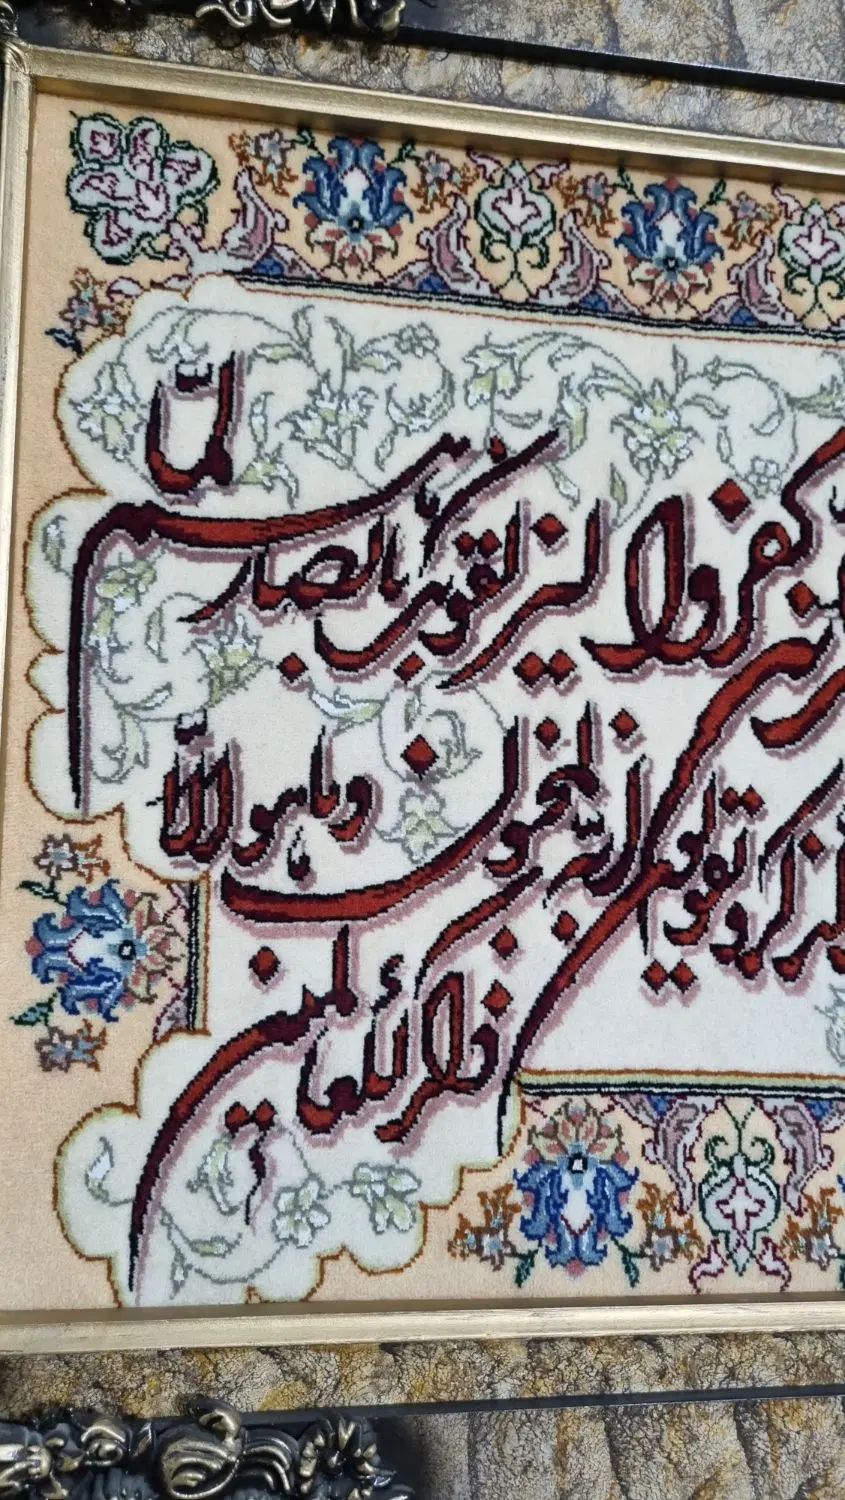 كفروا ليزلقونك بابصارهم لمّا
الذكر و يقولون انه لمجنون وما هو الّا
ذكر للعالمين